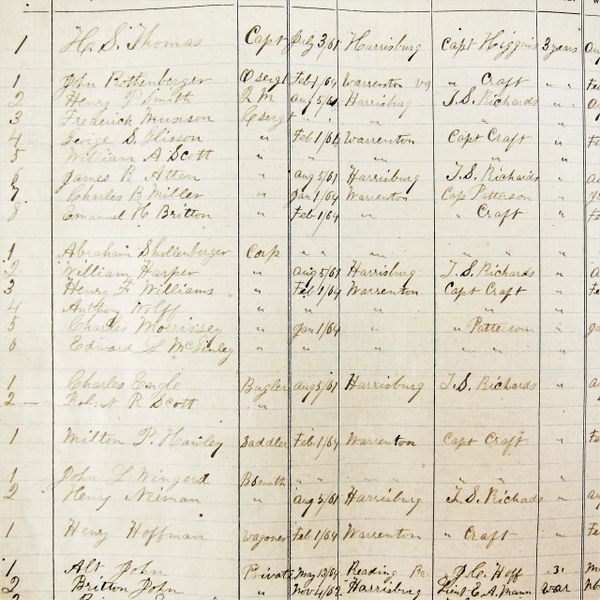 1 H. S. Thomas Capt July 3/61 Harrisburg Capt Higgins 3 years
1 John Rothenberger O Sergt Feb 1/64 Warrenton Va " Craft " "
2 Henry P Smith Q M Aug 5/61 Harrisburg T. S. Richards "
3 Frederick Munson C Sergt " " " "
4 George S. Glisson " Feb 1/64 Warrenton Capt Craft "
5 William A Scott " " " "
6 James R Atten " Aug 5/61 Harrisburg T. S. Richards "
7 Charles B Miller " Jan 1/64 Warrenton Cap Patterson "
8 Emanuel H Britton " Feb 1/64 " " Craft "
1 Abraham Shollenberger Corp " " " " "
2 William Harper " Aug 5/61 Harrisburg T. S. Richards "
3 Henry F Williams " Feb 1/64 Warrenton Capt Craft "
4 Anthony Wolff " " " " "
5 Charles Morrissey " Jan 1/64 " " Patterson "
6 Edward L McGinley " " " " "
1 Charles Engle Bugler Aug 5/61 Harrisburg T. S. Richards "
2 Robert R Scott "
1 Milton P. Hawley Saddler Feb 1/64 Warrenton Capt Craft "
1 John L Wingerd B Smith " " " "
2 Henry Neiman " Aug 5/61 Harrisburg T. S. Richards "
1 Henry Hoffman Wagoner Feb 1/64 Warrenton " Craft "
1 Alt John Private May 13/64 Reading Pa J. C. Hoff 3
2 Britton John " Nov 4/62 Harrisburg Lieut E. A. Mann War